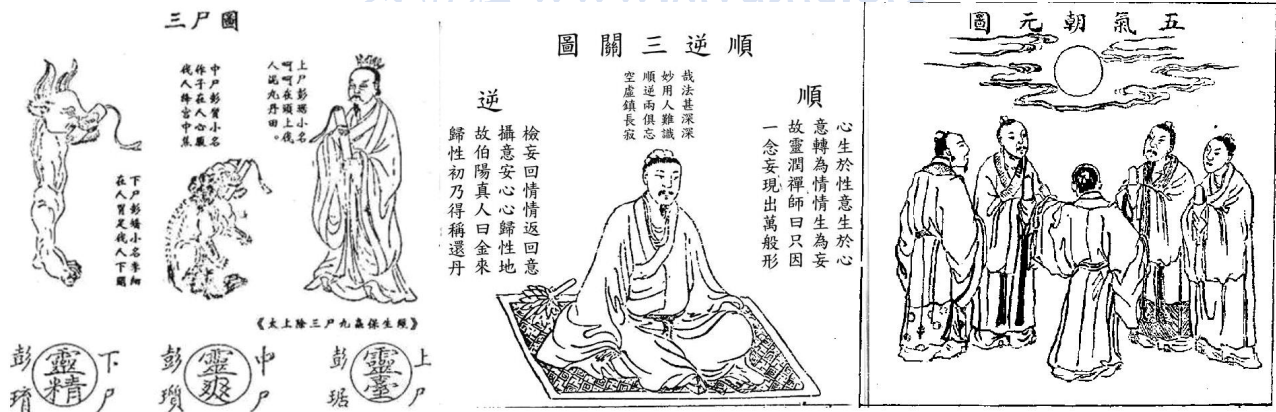 三尸圖
上尸彭琚小名
呵呵在頭上伐
人泥丸丹田。
中尸彭質小名
作子在人心
伐人絳宮中焦
下尸彭矯小名季細
在人胃足伐人下關
《太上除三尸九蟲保生經》
上尸
靈臺
彭琚
中尸
靈爽
彭瓆
下尸
靈精
彭
順逆三關圖
哉法甚深深
妙用人難識
順逆兩俱忘
空虛鎮長寂
順
心生於性意生於心
意轉為情情生為妄
故靈潤禪師曰只因
一念妄現出萬般形
逆
檢妄回情情返回意
攝意安心心歸性地
故伯陽真人曰金來
歸性初乃得稱還丹
五氣朝元圖